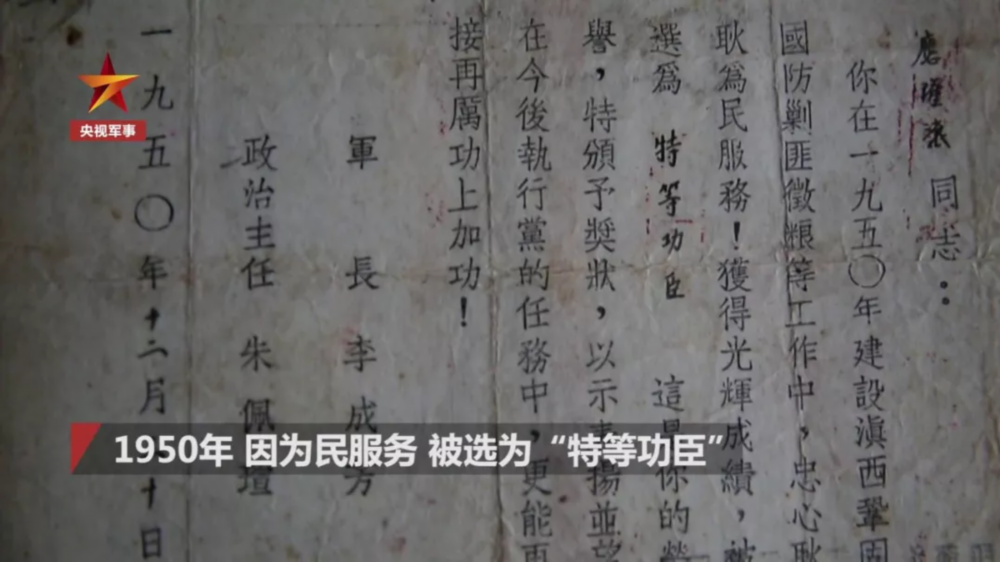 應瑾銖 同志：
你在一九五〇年建設滇西鞏固
國防剿匪徵粮等工作中，忠心耿
耿為民服務！獲得光輝成績，被
選爲 特等功臣 這是你的榮
譽，特頒予獎狀，以示表揚並望
在今後執行黨的任務中，更能再
接再厲功上加功！
軍長 李成芳
政治主任 朱佩瑄
一九五〇年十二月 十日
央视军事
1950年 因为民服务 被选为“特等功臣”